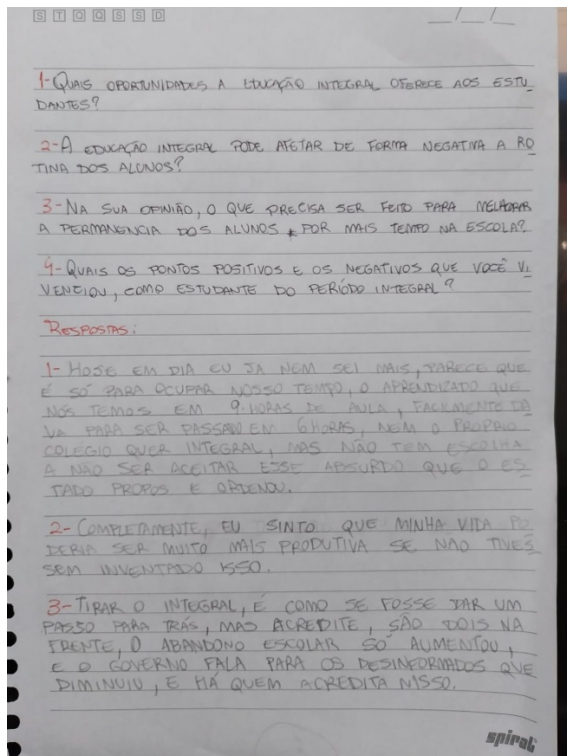 S T Q Q S S D
__/__/__
1- QUAIS OPORTUNIDADES A EDUCAÇÃO INTEGRAL OFERECE AOS ESTU_
DANTES?
2- A EDUCAÇÃO INTEGRAL PODE AFETAR DE FORMA NEGATIVA A RO_
TINA DOS ALUNOS?
3- NA SUA OPINIÃO, O QUE PRECISA SER FEITO PARA MELHORAR
A PERMANENCIA DOS ALUNOS POR MAIS TEMPO NA ESCOLA?
4- QUAIS OS PONTOS POSITIVOS E OS NEGATIVOS QUE VOCÊ VI_
VENCIOU, COMO ESTUDANTE DO PERÍODO INTEGRAL?
RESPOSTAS:
1- HOJE EM DIA EU JA NEM SEI MAIS, PARECE QUE
É SÓ PARA OCUPAR NOSSO TEMPO, O APRENDIZADO QUE
NÓS TEMOS EM 9 HORAS DE AULA, FACILMENTE DA_
VA PARA SER PASSADO EM 6 HORAS, NEM O PROPRIO
COLÉGIO QUER INTEGRAL, MAS NÃO TEM ESCOLHA
A NÃO SER ACEITAR ESSE ABSURDO QUE O ES_
TADO PROPOS E ORDENOU.
2- COMPLETAMENTE, EU SINTO QUE MINHA VIDA PO_
DERIA SER MUITO MAIS PRODUTIVA SE NÃO TIVES_
SEM INVENTADO ISSO.
3- TIRAR O INTEGRAL, É COMO SE FOSSE DAR UM
PASSO PARA TRÁS, MAS ACREDITE, SÃO DOIS NA
FRENTE, O ABANDONO ESCOLAR SÓ AUMENTOU,
E O GOVERNO FALA PARA OS DESINFORMADOS QUE
DIMINUIU, E HÁ QUEM ACREDITA NISSO.
spiral